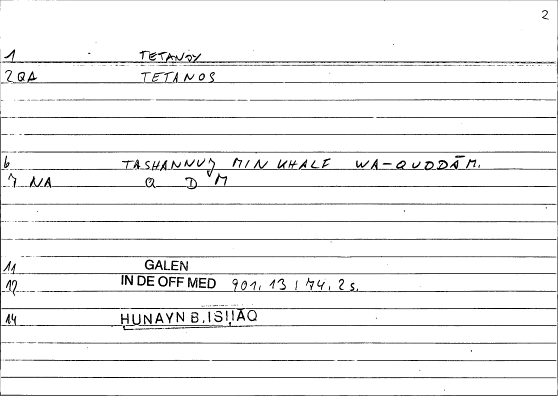 2
1 TETANOY
2 QA TETANOS
6 TASHANNUJ MIN KHALF WA-QUDDĀM.
7 NA Q D M
11 GALEN
12 IN DE OFF MED 901, 13 / 74, 2 s.
14 ḤUNAYN B. ISḤĀQ